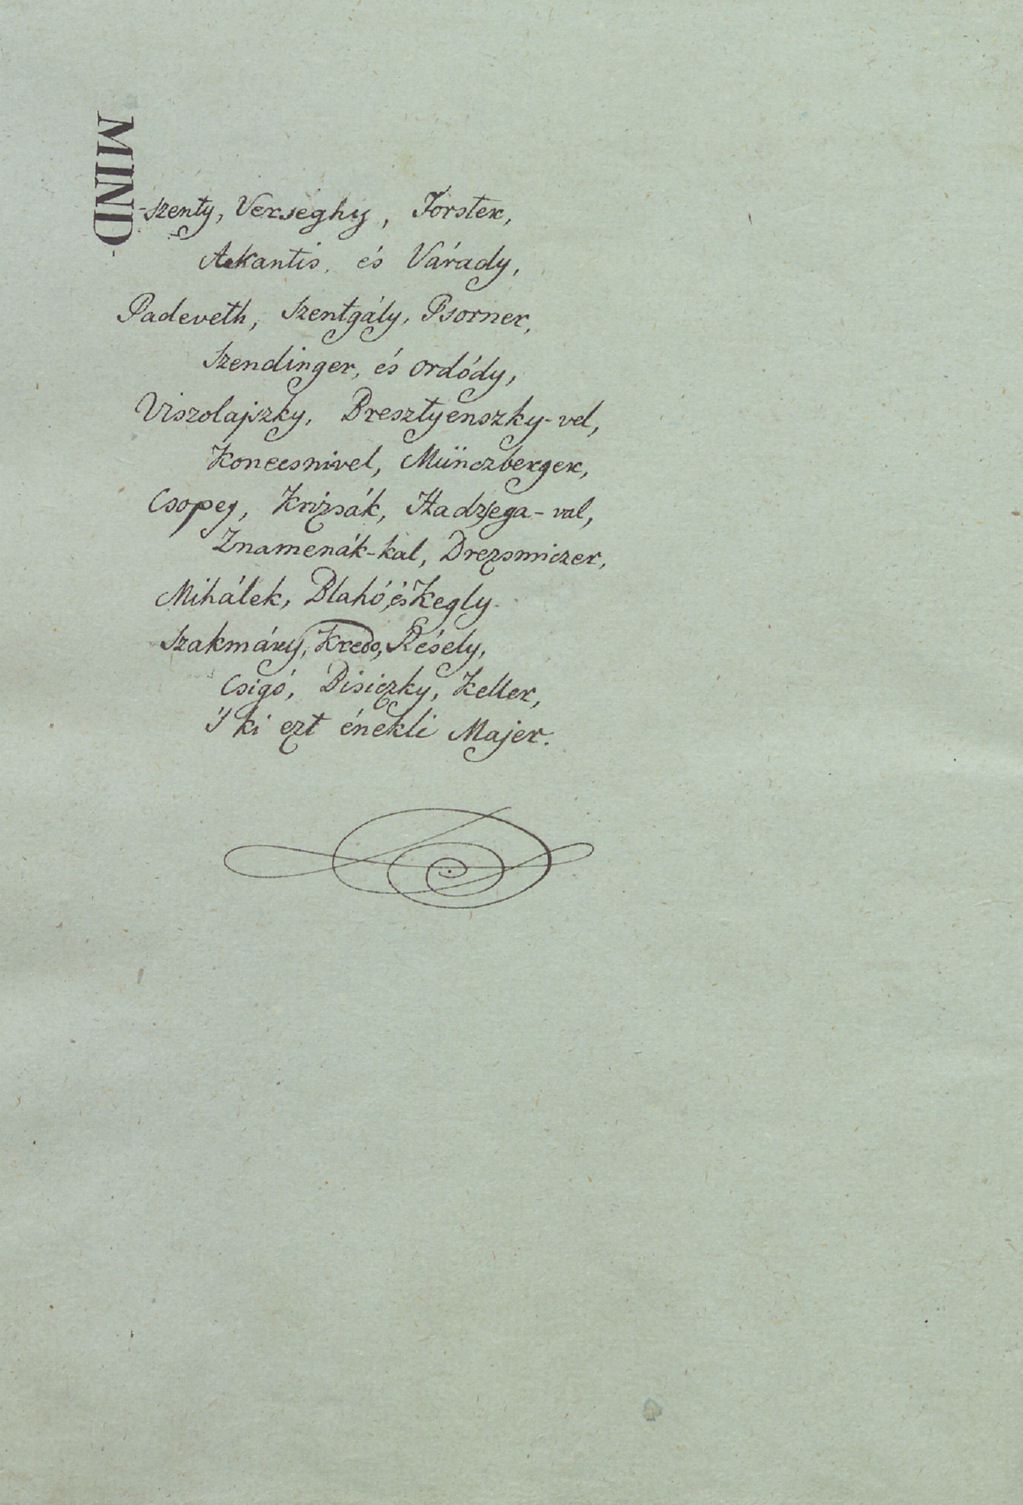 MIND
-szenty, Verseghy, Forster,
Askantis, és Várady,
Padeveth, Szentgály, Psorner,
Szendinger, és Ordódy,
Viszolajszky, Bresztyenszky-vel,
Konecsnivel, Münczberger,
Csopey, Krizsák, Hadzsega-val,
Znamenák-kal, Drezsmiczer,
Mihálek, Blahó, és Kegly.
Szakmáry, Kredo, Résely,
Csigó, Bisiczky, Keller,
'S ki ezt énekli Majer.